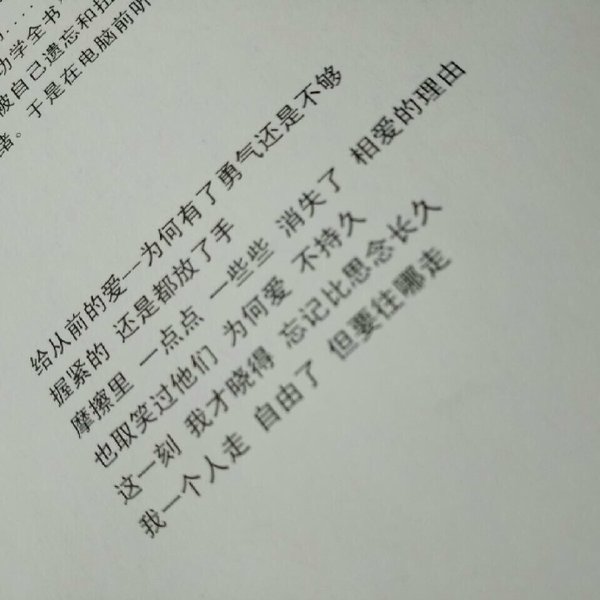 功学全书
被自己遗忘和扭
绪。于是在电脑前听
给从前的爱--为何有了勇气还是不够
握紧的 还是都放了手
摩擦里 一点点 一些些 消失了 相爱的理由
也取笑过他们 为何爱 不持久
这一刻 我才晓得 忘记比思念长久
我一个人走 自由了 但要往哪走